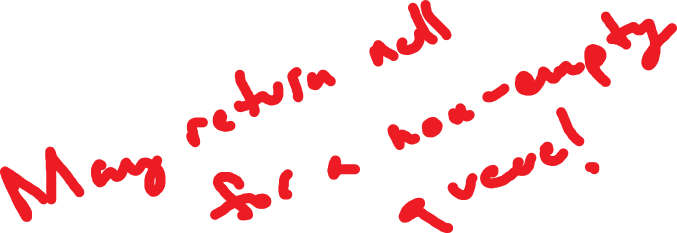 May return null
for a non-empty
queue!